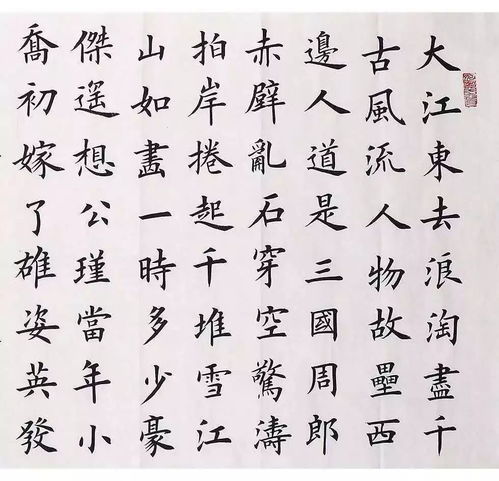 大江東去浪淘盡千
古風流人物故壘西
邊人道是三國周郎
赤壁亂石穿空驚濤
拍岸捲起千堆雪江
山如畫一時多少豪
傑遥想公瑾當年小
喬初嫁了雄姿英發